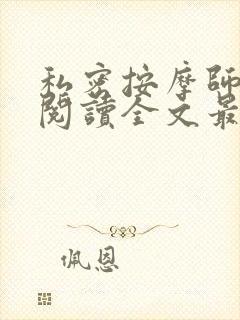 私密按摩師
閱讀全文最
佩恩